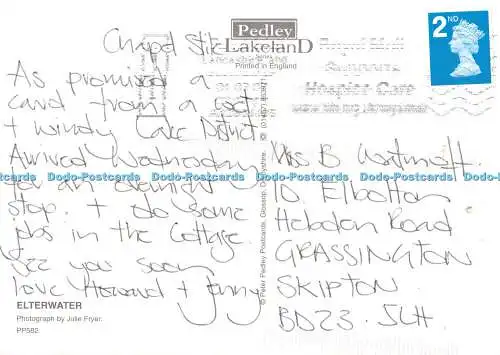 Chapel Stile
As promised a
card from a wet
+ windy Lake District
Arrived Wednesday
for an overnight
stop + do some
jobs in the Cottage.
See you soon
love Howard + Jenny
ELTERWATER
Photograph by Julie Fryer.
PP582
Pedley
LakelanD
Series
Printed in England
© Peter Pedley Postcards, Glossop, Derbyshire.
Royal Mail
supports
Hospice Care
2ND
Miss B
10 Elbolton
Hebden Road
GRASSINGTON
SKIPTON
BD23 5LH
Dodo-Postcards Dodo-Postcards Dodo-Postcards Dodo-Postcards